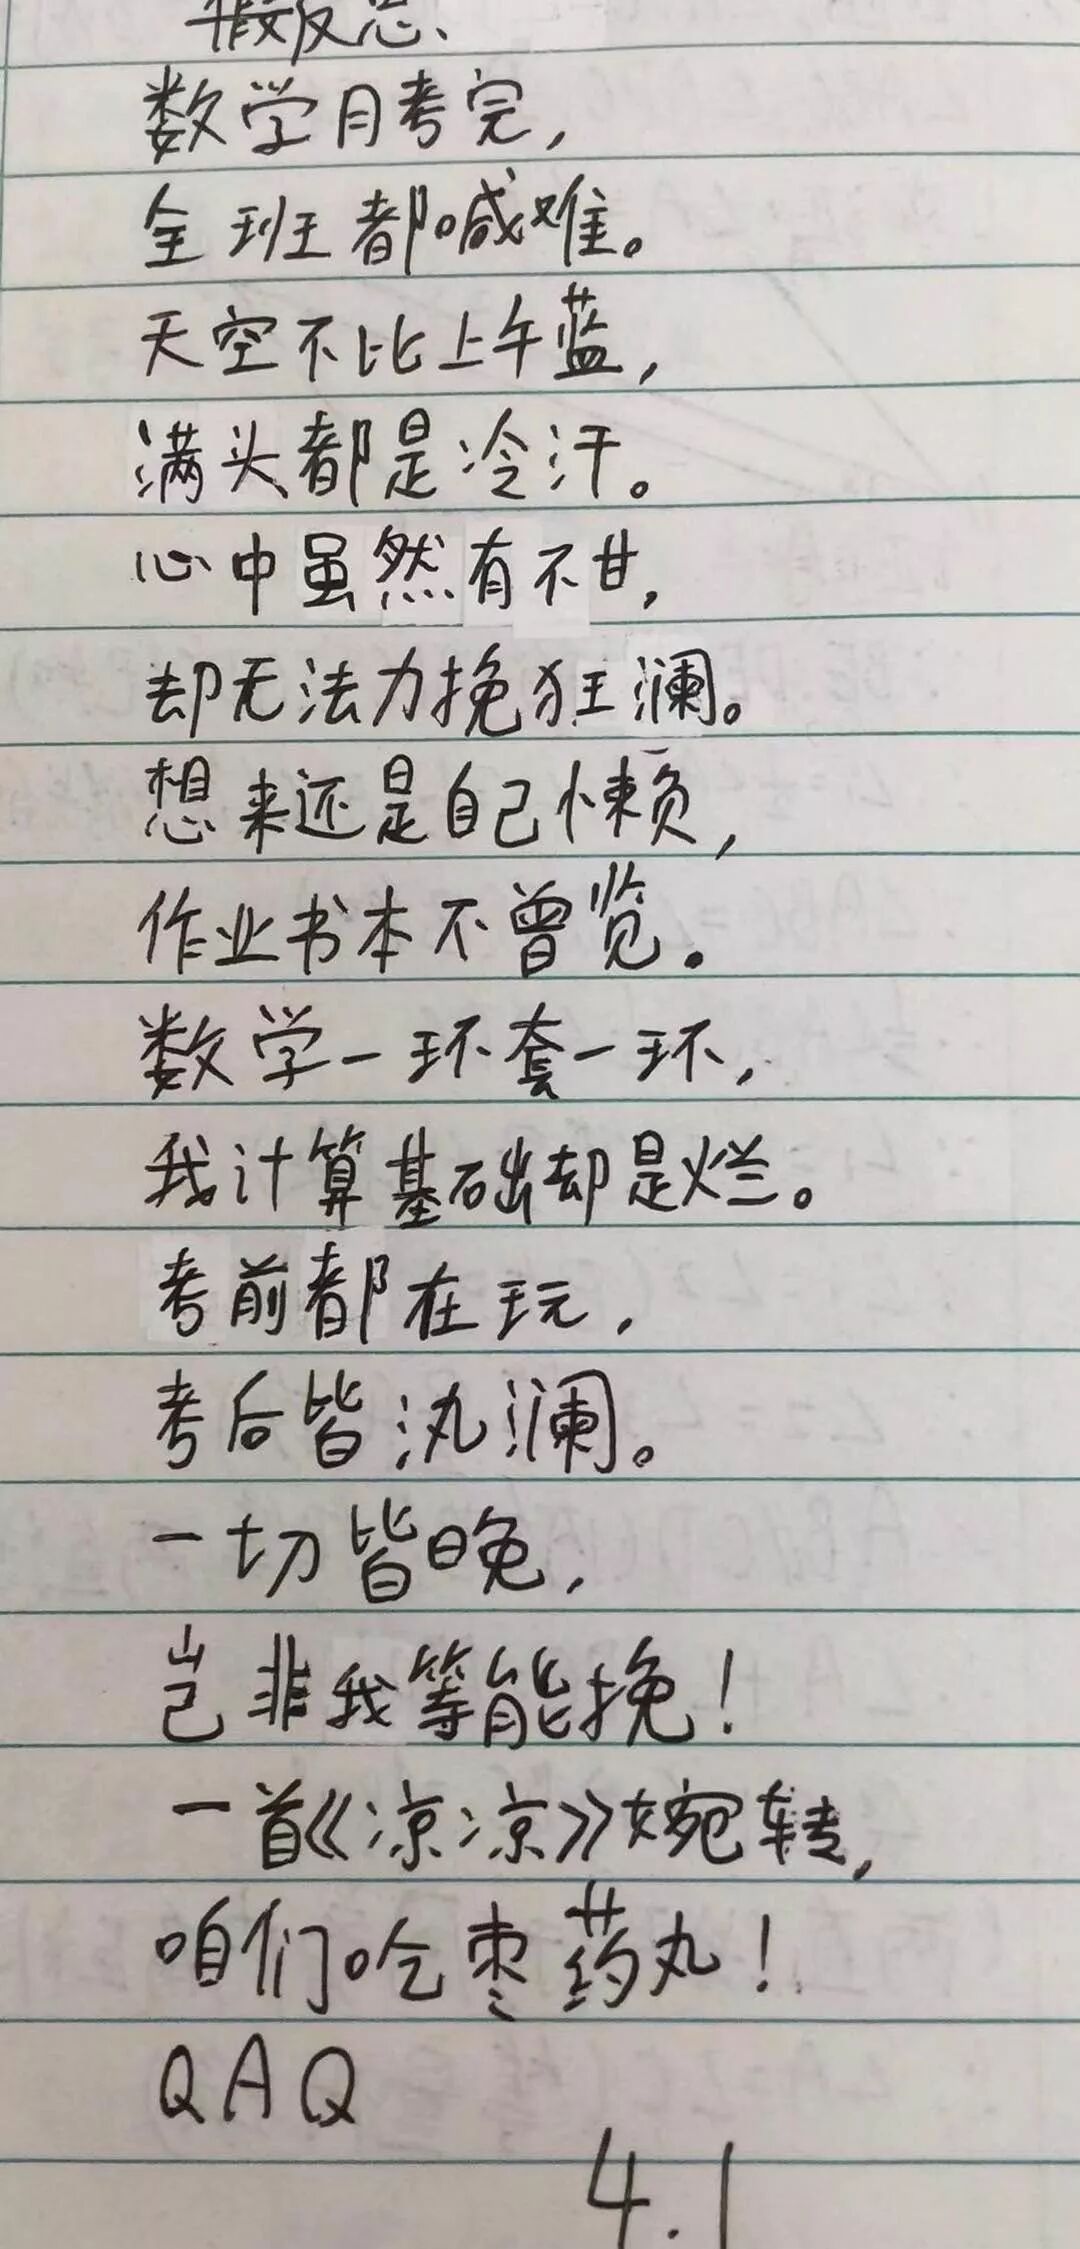 数学月考完，
全班都喊难。
天空不比上午蓝，
满头都是冷汗。
心中虽然有不甘，
却无法力挽狂澜。
想来还是自己懒，
作业书本不曾览.
数学一环套一环，
我计算基础却是烂。
考前都在玩，
考后皆汍澜。
一切皆晚，
岂非我等能挽！
一首《凉凉》婉转，
咱们吃枣药丸！
QAQ
4.1